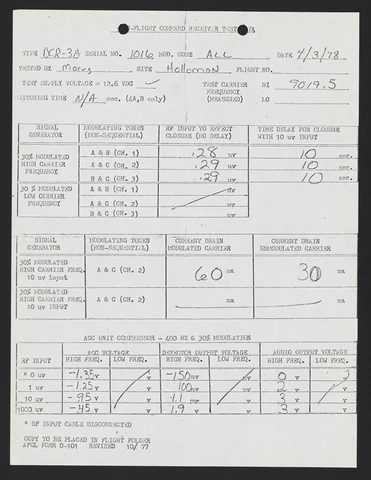 -FLIGHT COMMAND RECEIVER TEST
TYPE BCR-3A SERIAL NO. 1016 MOD. CODE ALL DATE 4/3/78
TESTED BY SITE Holloman FLIGHT NO.
TEST SUPPLY VOLTAGE = 12.6 VDC TEST CARRIER HI 9019.5
FREQUENCY
PITCHING TIME N/A sec. (AA,B only) (MEASURED) LO
SIGNAL GENERATOR MODULATING TONES (NON-SEQUENTIAL) RF INPUT TO EFFECT CLOSURE (NO DELAY) TIME DELAY FOR CLOSURE WITH 10 uv INPUT
30% MODULATED HIGH CARRIER FREQUENCY A & B (CH. 1) .28 uv 10 sec.
A & C (CH. 2) .29 uv 10 sec.
B & C (CH. 3) .29 uv 10 sec.
30 % MODULATED LOW CARRIER FREQUENCY A & B (CH. 1) uv
A & C (CH. 2) uv
B & C (CH. 3) uv
SIGNAL GENERATOR MODULATING TONES (NON-SEQUENTIAL) CURRENT DRAIN MODULATED CARRIER CURRENT DRAIN UNMODULATED CARRIER
30% MODULATED HIGH CARRIER FREQ. 10 uv input A & C (CH. 2) 60 ma 30 ma
30% MODULATED HIGH CARRIER FREQ. 10 uv INPUT A & C (CH. 2) ma ma
AGC UNIT COMPRESSOR - 400 HZ @ 30% MODULATION
RF INPUT AGC VOLTAGE DETECTOR OUTPUT VOLTAGE AUDIO OUTPUT VOLTAGE
HIGH FREQ. LOW FREQ. HIGH FREQ. LOW FREQ. HIGH FREQ. LOW FREQ.
* 0 uv -1.35 v v -150 mv v 0 v
1 uv -1.25 v v 100 mv v 2 v v
10 uv -.95 v v 1.1 v v 3 v v
1000 uv -.45 v v 1.9 v v 3 v v
* RF INPUT CABLE DISCONNECTED
COPY TO BE PLACED IN FLIGHT FOLDER
AFGL FORM 0-101 REVISED 10/ 77